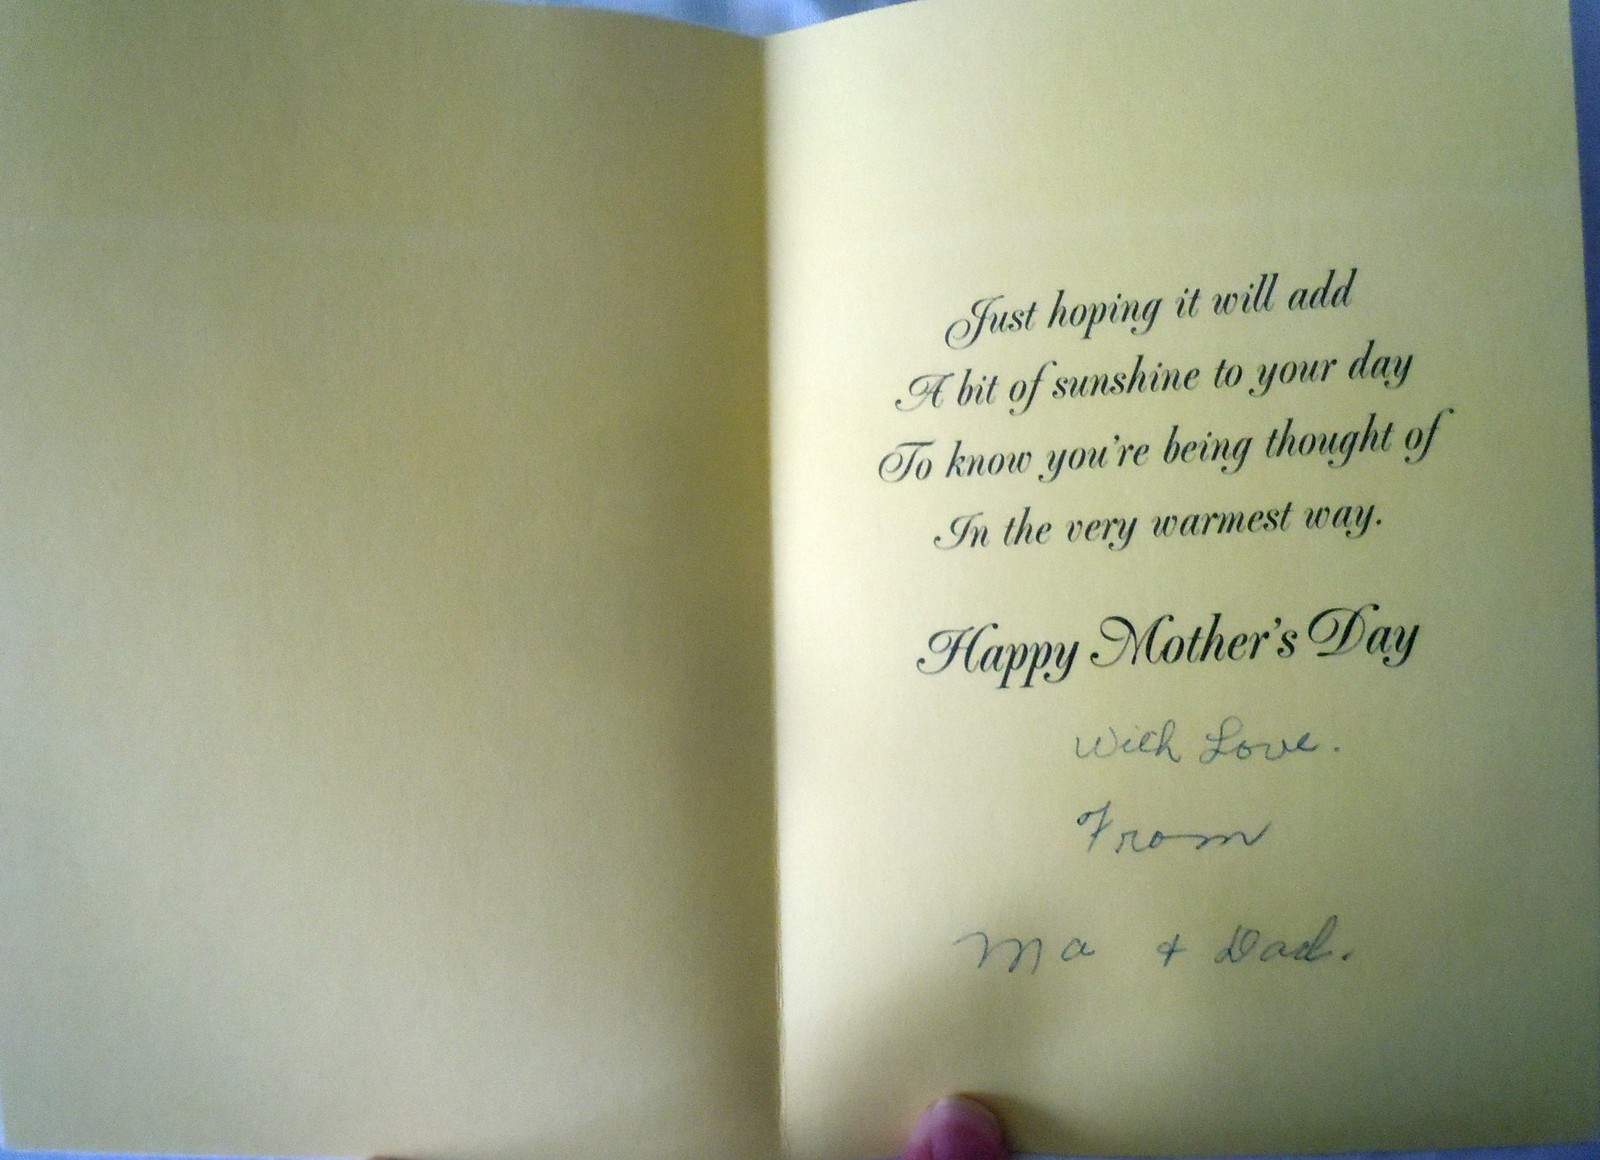 Just hoping it will add
A bit of sunshine to your day
To know you're being thought of
In the very warmest way.
Happy Mother's Day
With Love.
From
Ma + Dad.